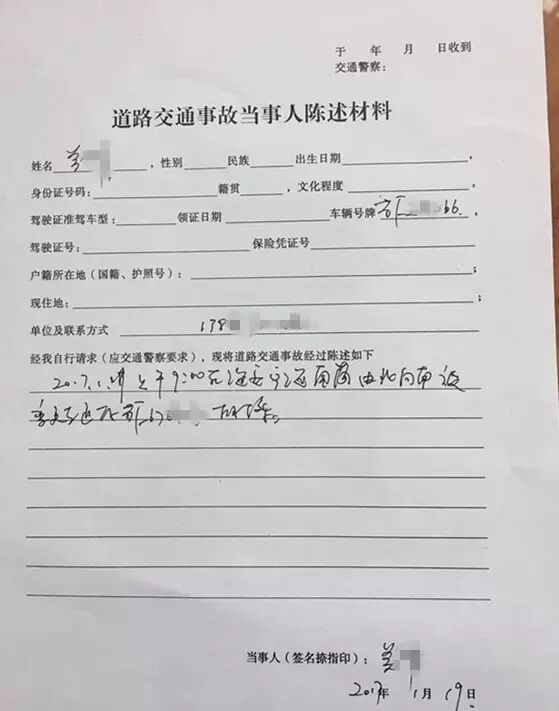 于 年 月 日收到
交通警察：
道路交通事故当事人陈述材料
姓名 姜 ，性别 民族 出生日期 ，
身份证号码： 籍贯 ，文化程度 ，
驾驶证准驾车型： 领证日期 车辆号牌 66 ，
驾驶证号： 保险凭证号
户籍所在地（国籍、护照号）： ；
现住地： ；
单位及联系方式 138
经我自行请求（应交通警察要求），现将道路交通事故经过陈述如下
2017.1. 上午9:00在海安 由北向南被
当事人（签名捺指印）： 姜
2017年 1月 19日